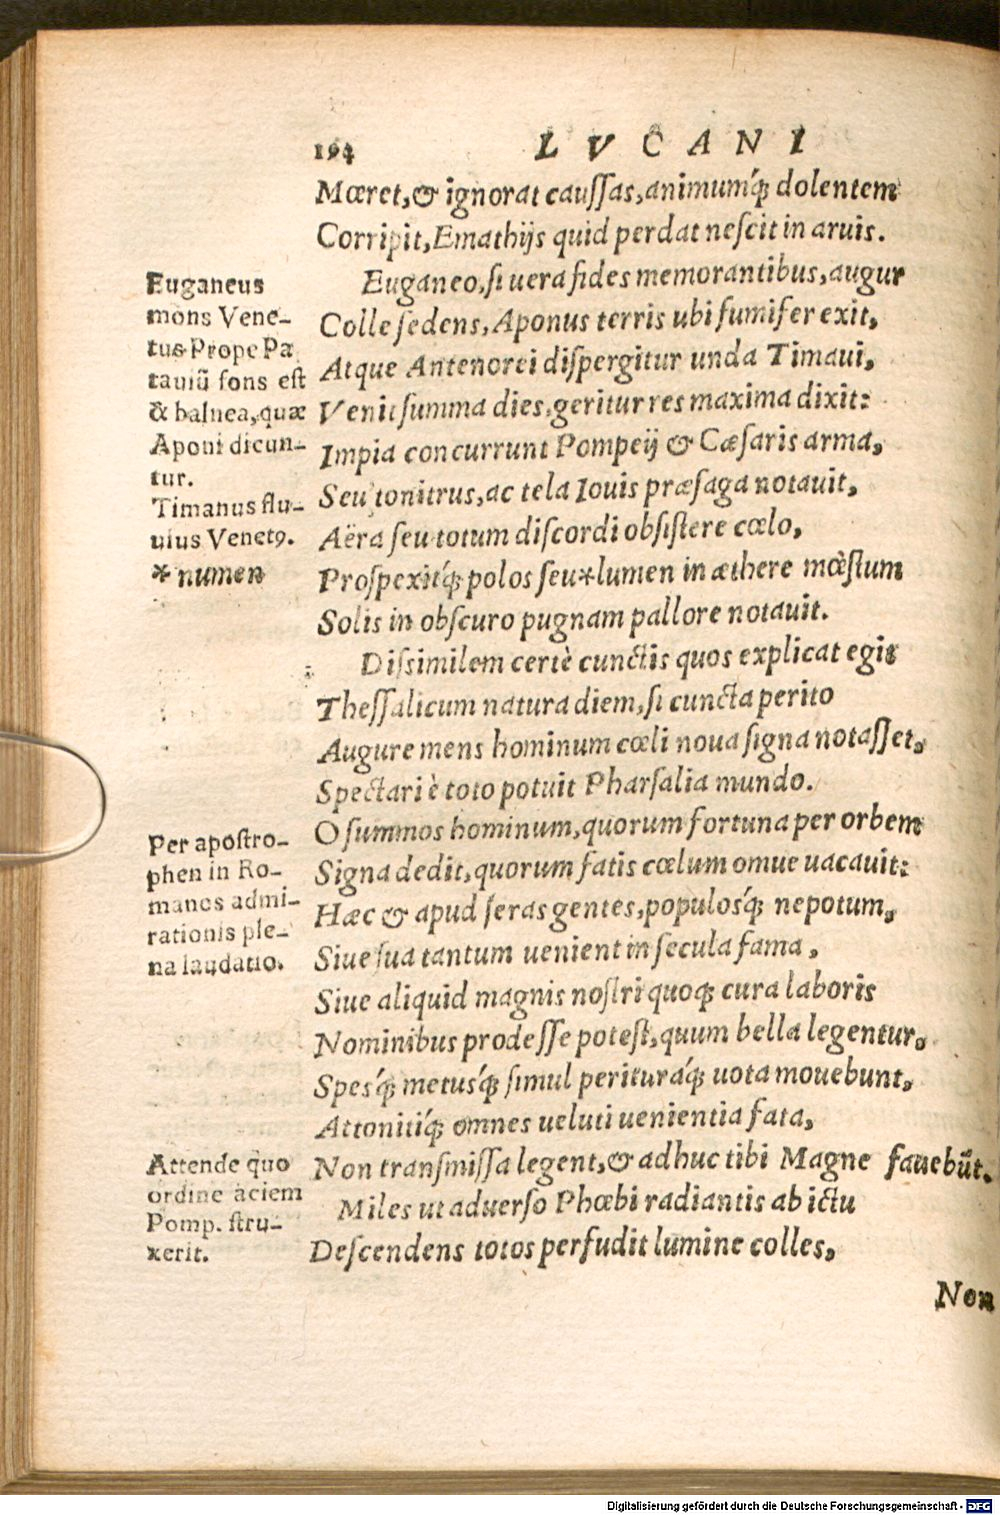 194 LVCANI
Mœret,& ignorat cauſſas,animumq́; dolentem
Corripit,Emathijs quid perdat neſcit in aruis.
Euganeo,ſi uera fides memorantibus,augur
Colle ſedens,Aponus terris ubi fumifer exit,
Atque Antenorei diſpergitur unda Timaui,
Venit ſumma dies,geritur res maxima dixit:
Impia concurrunt Pompeij & Cæſaris arma,
Seu tonitrus,ac tela Iouis præſaga notauit,
Aëra ſeu totum diſcordi obſiſtere cœlo,
Proſpexitq́; polos ſeu*lumen in æthere mœ̀ſtum
Solis in obſcuro pugnam pallore notauit.
Diſsimilem certè cunctis quos explicat egit
Theſſalicum natura diem,ſi cuncta perito
Augure mens hominum cœli noua ſigna notaſſet,
Spectari è toto potuit Pharſalia mundo.
O ſummos hominum,quorum fortuna per orbem
Signa dedit,quorum fatis cœlum omue uacauit:
Hæc & apud ſeras gentes,populosq́; nepotum,
Siue ſua tantum uenient in ſecula fama,
Siue aliquid magnis noſtri quoq; cura laboris
Nominibus prodeſſe poteſt,quum bella legentur,
Spesq́; metusq́; ſimul perituraq́; uota mouebunt,
Attonitiq́; omnes ueluti uenientia fata,
Non tranſmiſſa legent,& adhuc tibi Magne fauebūt.
Miles ut aduerſo Phœbi radiantis ab ictu
Deſcendens totos perfudit lumine colles,
Non
Euganeus
mons Vene-
tus Prope Pa
tauiū fons eſt
& balnea,quæ
Aponi dicun-
tur.
Timanus flu-
uius Venetꝰ.
* numen
Per apoſtro-
phen in Ro-
manos admi-
rationis ple-
na laudatio.
Attende quo
ordine aciem
Pomp. ſtru-
xerit.
Digitalisierung gefördert durch die Deutsche Forschungsgemeinschaft - DFG